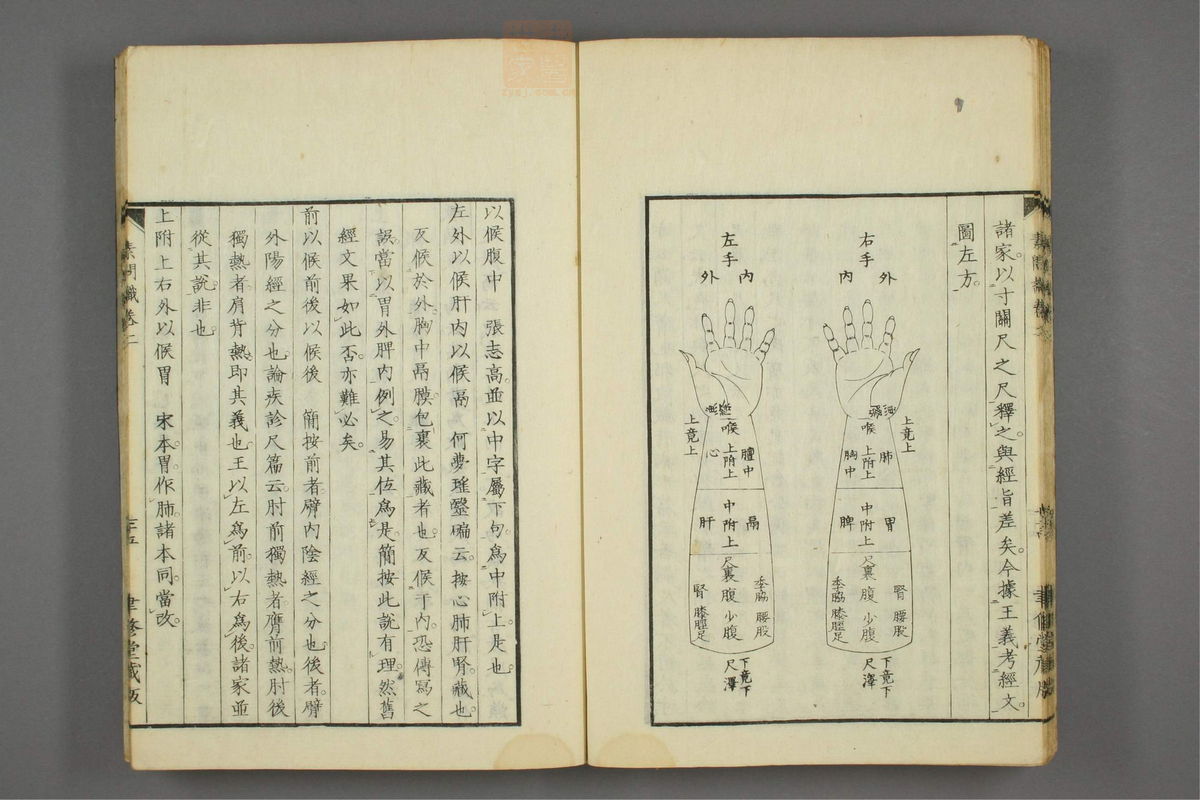 諸家以寸關尺之尺釋之與經旨差矣今據王義考經文
圖左方
右手
外
內
上竟上
喉
肺
上附上
胸中
胃
中附上
脾
尺裏
腎
腰股
腹
少腹
季脇
膝脛足
下竟下
尺澤
左手
內
外
上竟上
喉
膻中
上附上
心
鬲
中附上
肝
尺裏
季脇
腰股
腹
少腹
腎
膝脛足
下竟下
尺澤
以候腹中　張志高並以中字屬下句為中附上是也
左外以候肝內以候鬲　何夢瑤醫碥云按心肺肝腎藏也
反候於外胸中鬲膜包裹此藏者也反候于內恐傳寫之
誤當以胃外脾內例之易其位為是簡按此說有理然舊
經文果如此否亦難必矣
前以候前後以候後　簡按前者臂內陰經之分也後者臂
外陽經之分也論疾診尺篇云肘前獨熱者膺前熱肘後
獨熱者肩背熱即其義也王以左為前以右為後諸家並
從其說非也
上附上右外以候胃　宋本胃作肺諸本同當改
素問識卷二
聿修堂藏版